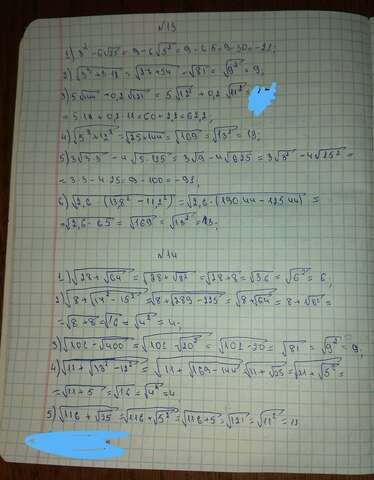 №13
1) 3² - 6√25 = 9 - 6√5² = 9 - 6·5 = 9 - 30 = -21;
2) √3³ + 3·18 = √27+54 = √81 = √9² = 9;
3) 5√144 + 0,2√121 = 5√12² + 0,2√11² =
= 5·12 + 0,2·11 = 60 + 2,2 = 62,2;
4) √5²+12² = √25+144 = √169 = √13² = 13;
5) 3√3·3 - 4√5·125 = 3√9 - 4√625 = 3√3² - 4√25² =
= 3·3 - 4·25 = 9 - 100 = -91;
6) √2,6·(13,8² - 11,2²) = √2,6·(190,44 - 125,44) =
= √2,6·65 = √169 = √13² = 13.
№14
1) √28+√64 = √28+√8² = √28+8 = √36 = √6² = 6,
2) √8+√17²-15² = √8+√289-225 = √8+√64 = 8+√8² =
= √8+8 = √16 = √4² = 4;
3) √101-√400 = √101-√20² = √101-20 = √81 = √9² = 9,
4) √11+√13²-12² = √11+√169-144 = √11+√25 = √11+√5² =
= √11+5 = √16 = √4² = 4
5) √116+√25 = √116+√5² = √116+5 = √121 = √11² = 11